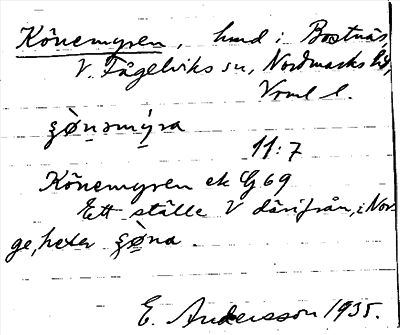 Könemyren, hmd i Bostnäs,
V. Fågelviks sn, Nordmarks hd,
Vrml l.
ʒø̀nəmýra
11:7
Könemyren ek G 69
Ett ställe V därifrån, i Nor-
ge, heter ʒø̀na.
E. Andersson 1935.